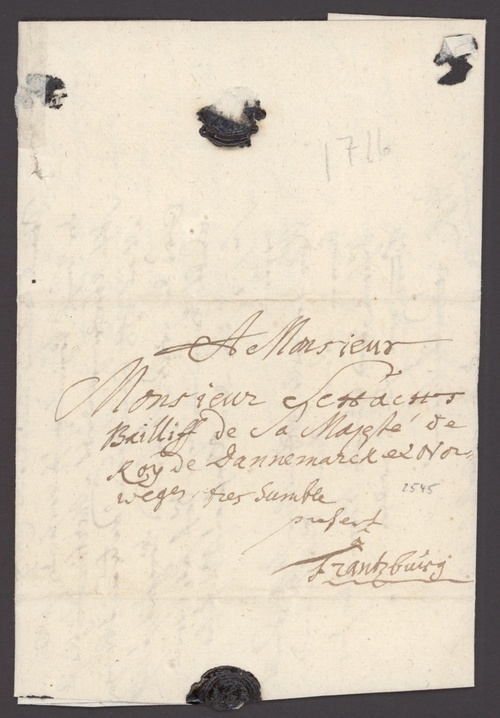 1716
A Monsieur
Monsieur
Bailliff de Sa Majesté de
Roy de Dannemarck et Nor-
weges, tres humble
present
a
Frantzburg
2545